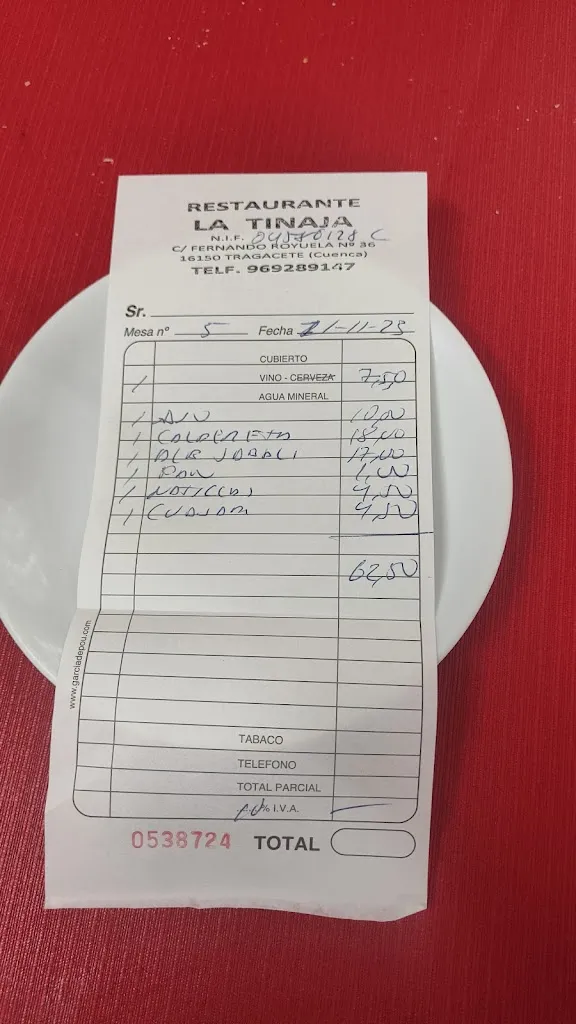 RESTAURANTE
LA TINAJA
N.I.F. 04580128 C
C/ FERNANDO ROYUELA Nº 36
16150 TRAGACETE (Cuenca)
TELF. 969289147
Sr.
Mesa nº 5 Fecha 21-11-25
CUBIERTO
1 VINO - CERVEZA 7,50
AGUA MINERAL
1 AJO 10,00
1 CALDERETA 18,00
1 JABALI 17,00
1 PAN 1,00
1 NATILLAS 4,50
1 CUAJADA 4,50
62,50
www.garciadepou.com
TABACO
TELEFONO
TOTAL PARCIAL
10% I.V.A.
0538724 TOTAL